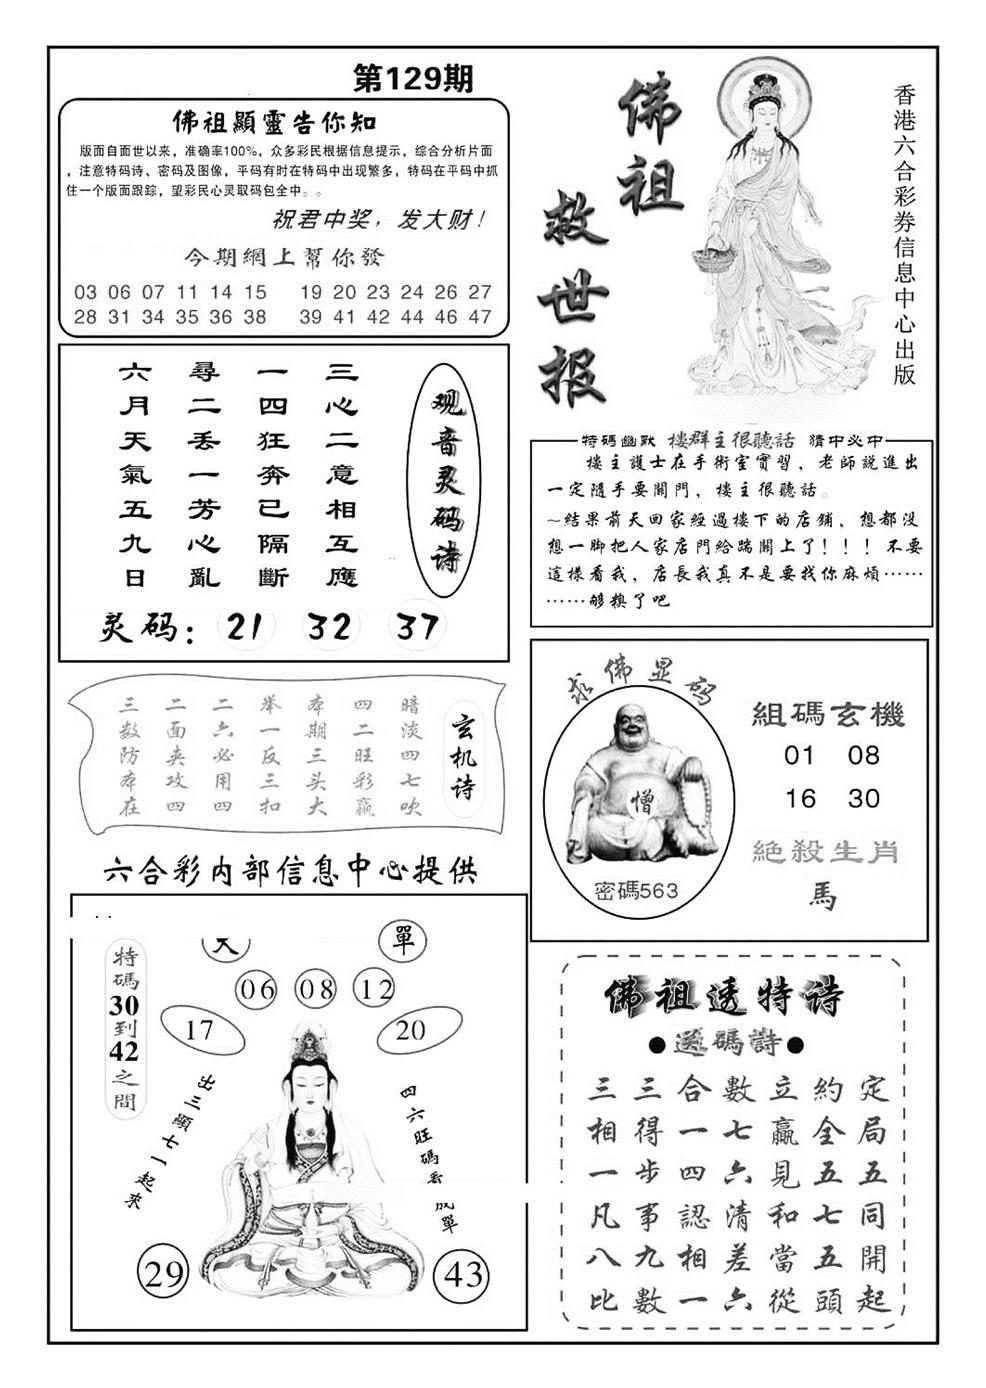 第129期
佛祖顯靈告你知
版面自面世以来，准确率100%，众多彩民根据信息提示，综合分析片面
，注意特码诗、密码及图像，平码有时在特码中出现繁多，特码在平码中抓
住一个版面跟踪，望彩民心灵取码包全中。。
祝君中奖，发大财！
今期網上幫你發
03 06 07 11 14 15 19 20 23 24 26 27
28 31 34 35 36 38 39 41 42 44 46 47
佛祖
救世报
香港六合彩券信息中心出版
观音灵码诗
三心二意相互應
一四狂奔已隔斷
尋二丢一芳心亂
六月天氣五九日
灵码：21 32 37
特碼幽默 樓群主很聽話 猜中必中
樓主護士在手術室實習，老師説進出
一定隨手要關門，樓主很聽話。
~结果前天回家經過樓下的店铺，想都没
想一脚把人家店門给踹關上了！！！不要
這樣看我，店長我真不是要找你麻煩……
……够糗了吧
玄机诗
暗淡四七吹
四二旺彩赢
本期三头大
举一反三扣
二六必用四
二面夹攻四
三数防本在
求佛显码
僧
密碼563
組碼玄機
01 08
16 30
絕殺生肖
馬
六合彩内部信息中心提供
特碼30到42之間
單
06 08 12
17 20
出三顯七一起來
四六旺碼
單
29 43
佛祖透特诗
●透碼詩●
三三合數立約定
相得一七贏全局
一步四六見五五
凡事認清和七同
八九相差當五開
比數一六從頭起